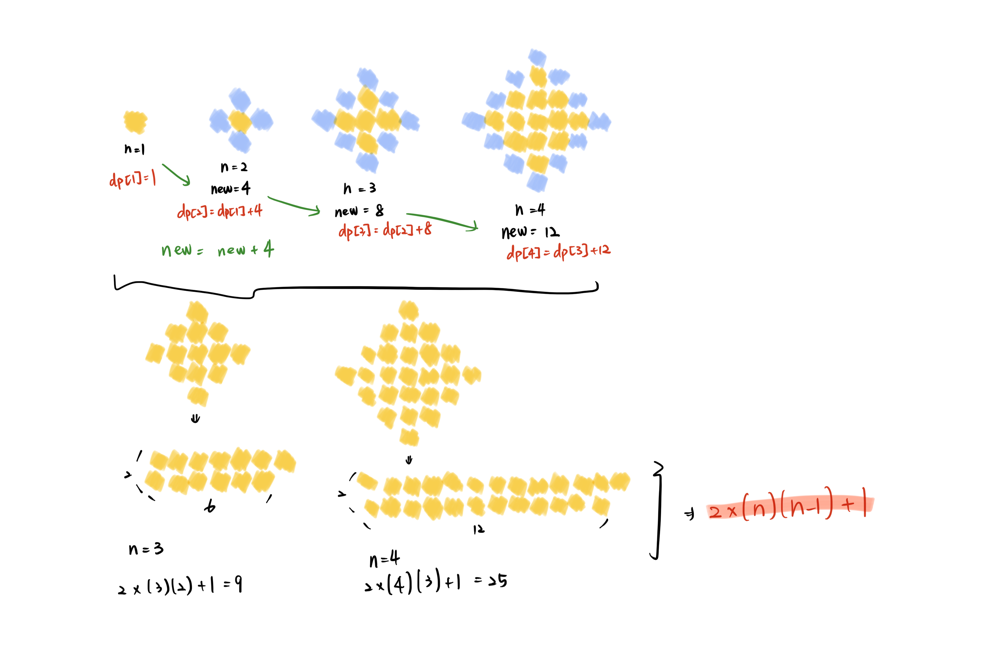 n=1
dp[1]=1
n=2
new=4
dp[2]=dp[1]+4
n=3
new=8
dp[3]=dp[2]+8
n=4
new=12
dp[4]=dp[3]+12
new= new+4
⇓
2
6
n=3
2×(3)(2)+1=9
⇓
2
12
n=4
2×(4)(3)+1=25
⇒ 2×(n)(n-1)+1